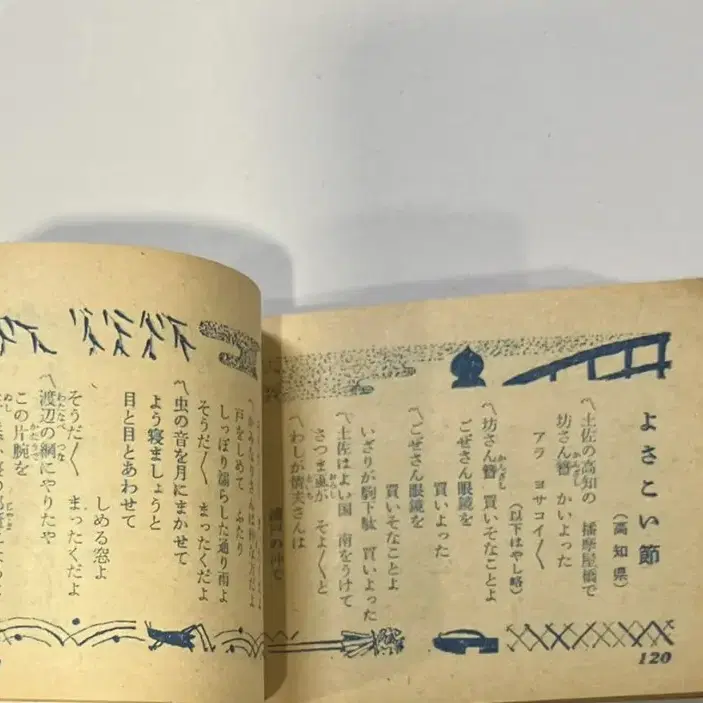 よさこい節
(高知県)
〽土佐の高知の 播摩屋橋で
坊さん簪 かいよった
アラ ヨサコイ〳〵
(以下はやし略)
〽坊さん簪 買いそなことよ
ごぜさん眼鏡を 買いよった
〽ごぜさん眼鏡を
買いそなことよ
いざりが駒下駄 買いよった
〽土佐はよい国 南をうけて
さつま颪が そよ〳〵と
〽わしが情夫さんは
浦戸の沖で
120
戸をしめて ふたり
しっぽり濡らした通り雨よ
そうだ〳〵 まったくだよ
〽虫の音を月にまかせて
よう寝ましょうと
目と目とあわせて
しめる窓よ
そうだ〳〵 まったくだよ
〽渡辺の綱にやりたや
この片腕を